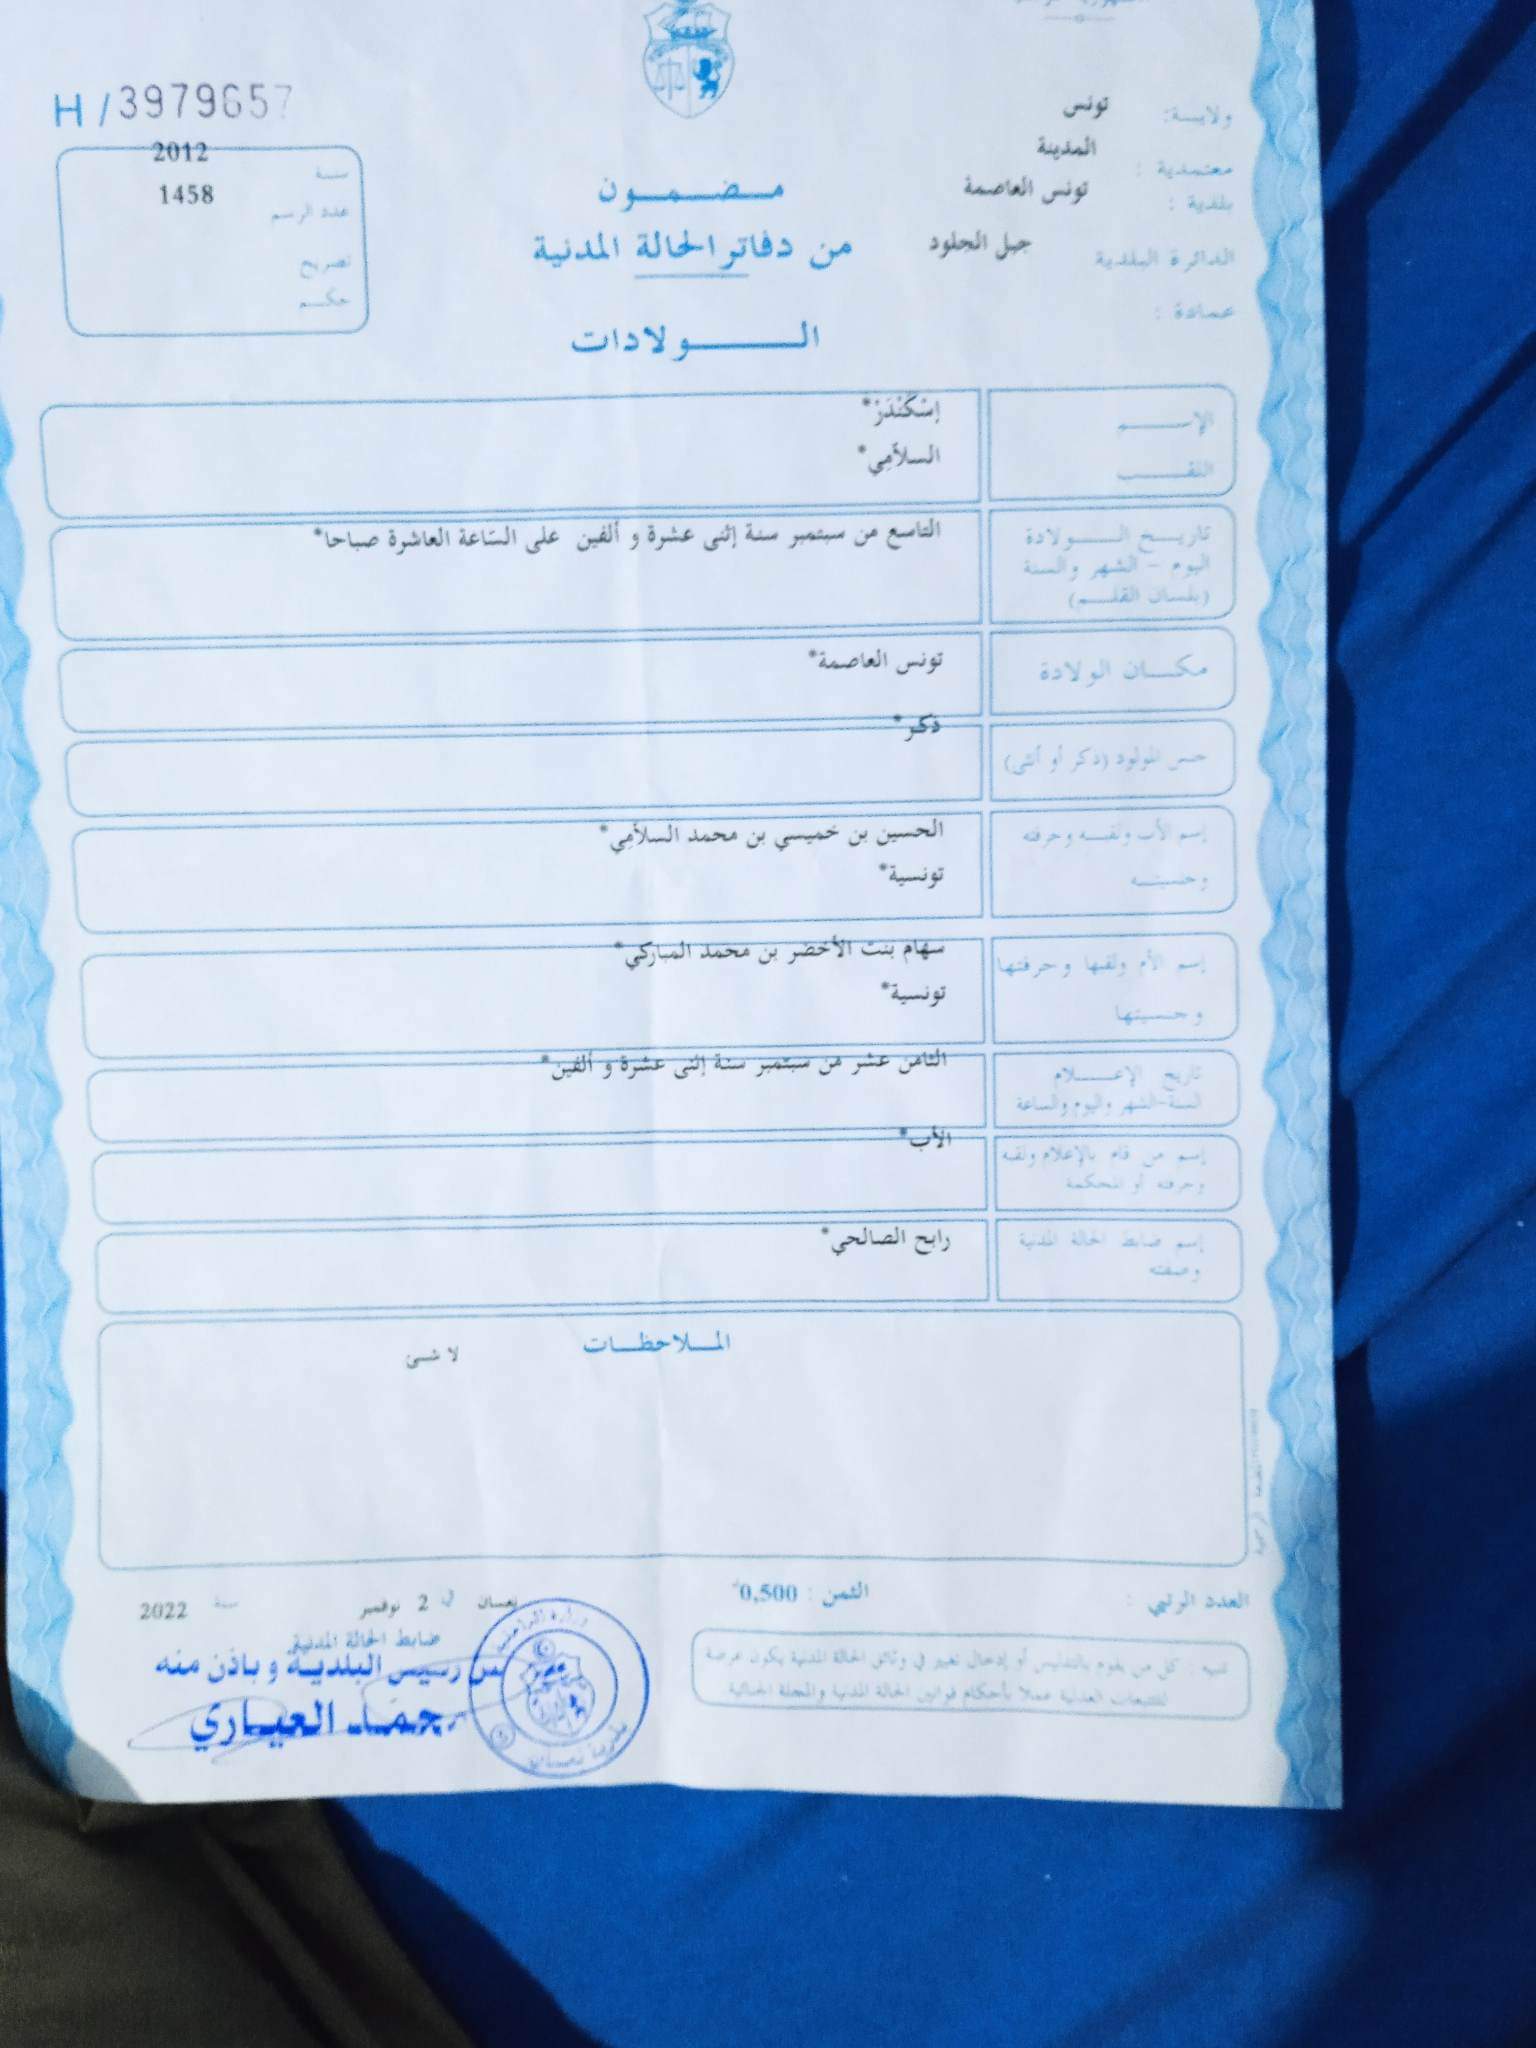 H / 3979657
سنة 2012
عدد الرسم 1458
تصريح
حكم
ولاية: تونس
معتمدية : المدينة
بلدية : تونس العاصمة
الدائرة البلدية جبل الجلود
عمادة :
مضمون
من دفاتر الحالة المدنية
الولادات
الإسم إِسْكَنْدَرْ*
اللقب السلاّمِي*
تاريخ الولادة التاسع من سبتمبر سنة إثنى عشرة و ألفين على السّاعة العاشرة صباحا*
اليوم - الشهر والسنة
(بلسان القلم)
مكان الولادة تونس العاصمة*
جنس المولود (ذكر أو أنثى) ذكر*
إسم الأب ولقبه وحرفته الحسين بن خميسي بن محمد السلاّمِي*
وجنسيته تونسية*
إسم الأم ولقبها وحرفتها سهام بنت الأخضر بن محمد المباركي*
وجنسيتها تونسية*
تاريخ الإعلام الثامن عشر من سبتمبر سنة إثنى عشرة و ألفين*
السنة-الشهر واليوم والساعة
إسم من قام بالإعلام ولقبه الأب*
وحرفته أو المحكمة
إسم ضابط الحالة المدنية رابح الصالحي*
وصفته
الملاحظات
لا شئ
العدد الرتبي :
الثمن : 0,500د
بنعسان في 2 نوفمبر سنة 2022
ضابط الحالة المدنية
رئيس البلدية وبإذن منه
حمد العياري
تنبيه : كل من يقوم بالتدليس أو إدخال تغيير في وثائق الحالة المدنية يكون عرضة
للتتبعات العدلية عملا بأحكام قوانين الحالة المدنية والمجلة الجنائية
وزارة الداخلية